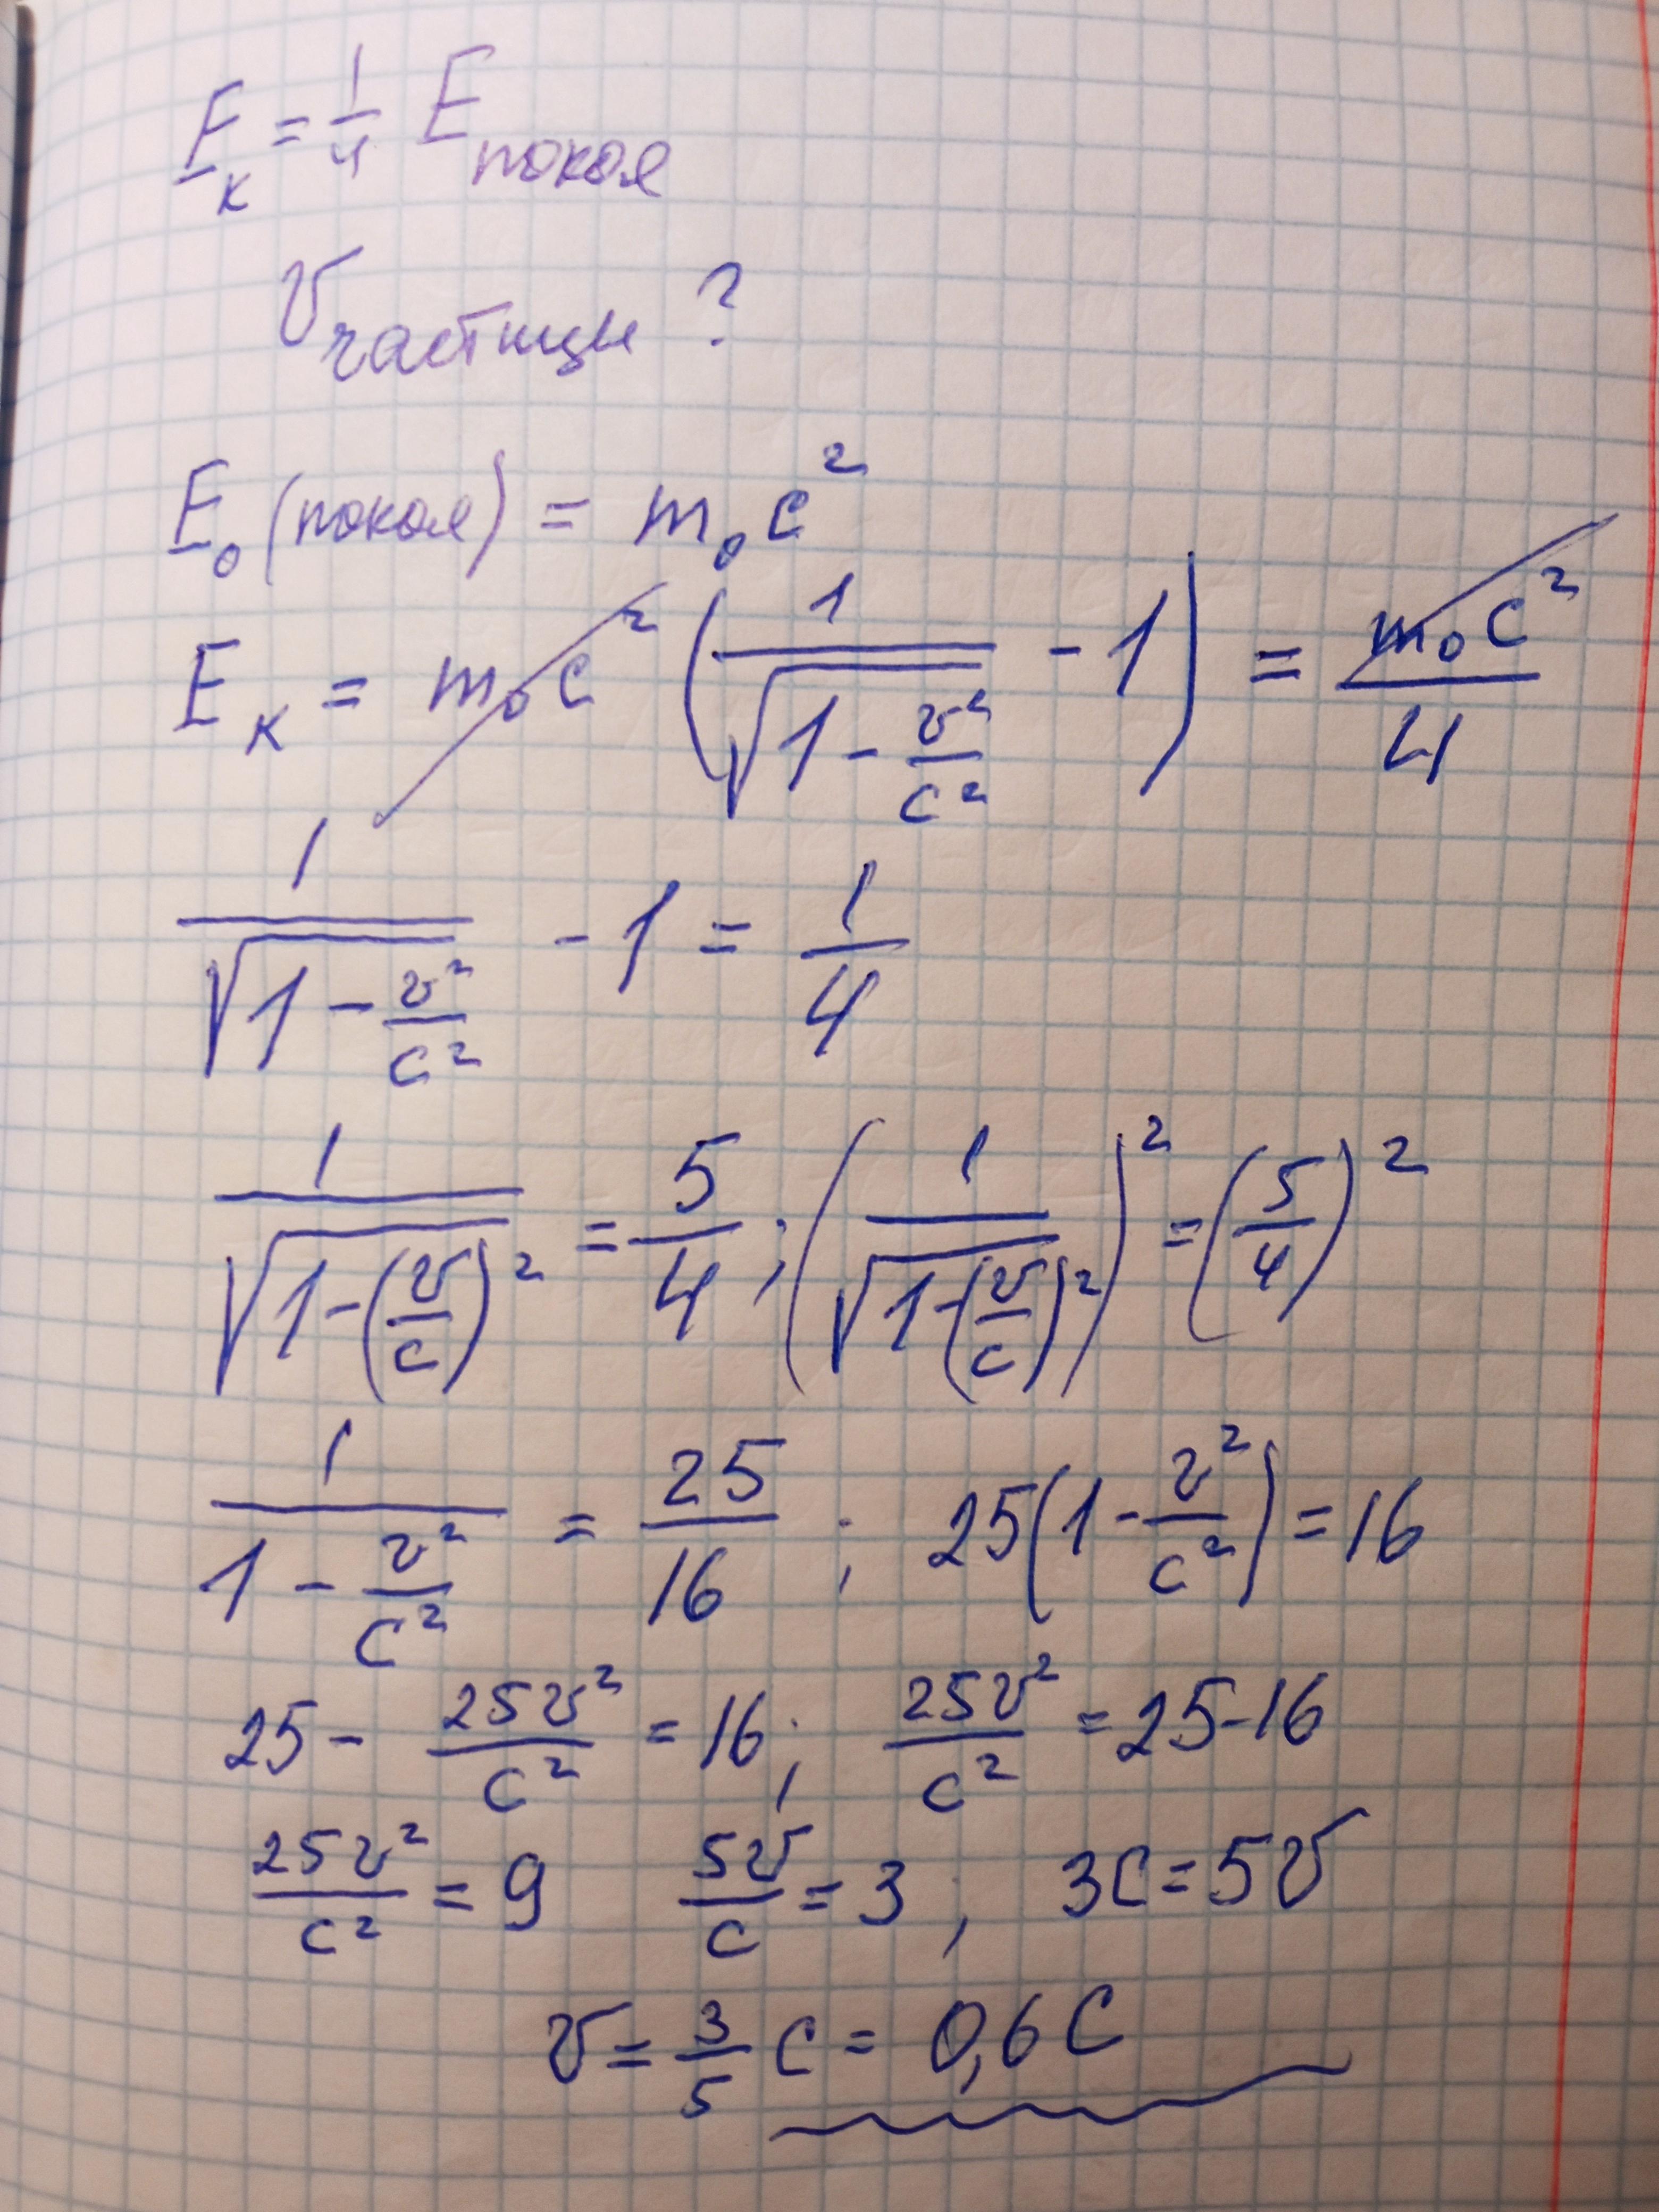 E_к = 1/4 E_покоя
v_частицы ?
E_0 (покоя) = m_0 c^2
E_к = m_0 c^2 (1/√(1 - v^2/c^2) - 1) = m_0 c^2/4
1/√(1 - v^2/c^2) - 1 = 1/4
1/√(1 - (v/c)^2) = 5/4 ; (1/√(1 - (v/c)^2))^2 = (5/4)^2
1/(1 - v^2/c^2) = 25/16 ; 25(1 - v^2/c^2) = 16
25 - 25v^2/c^2 = 16 ; 25v^2/c^2 = 25-16
25v^2/c^2 = 9 5v/c = 3 , 3c = 5v
v = 3/5 c = 0,6 c